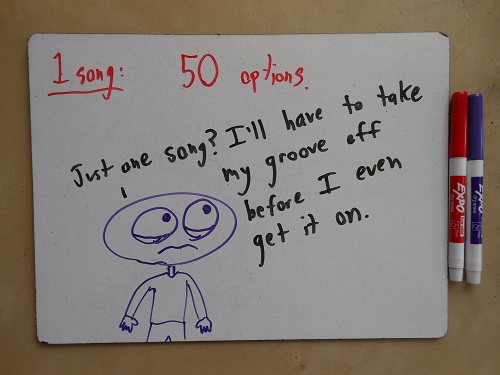 1 song: 50 options.
Just one song? I'll have to take
my groove off
before I even
get it on.
EXPO
EXPO